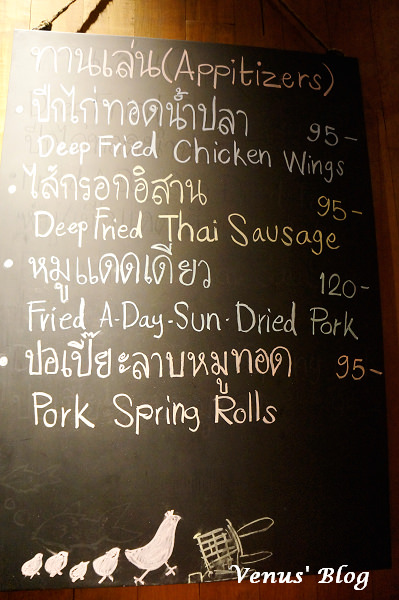 ทานเล่น(Appitizers)
• ปีกไก่ทอดน้ำปลา 95-
Deep Fried Chicken Wings
• ไส้กรอกอิสาน 95-
Deep Fried Thai Sausage
• หมูแดดเดียว 120-
Fried A-Day-Sun-Dried Pork
• ปอเปี๊ยะลาบหมูทอด 95-
Pork Spring Rolls
Venus' Blog